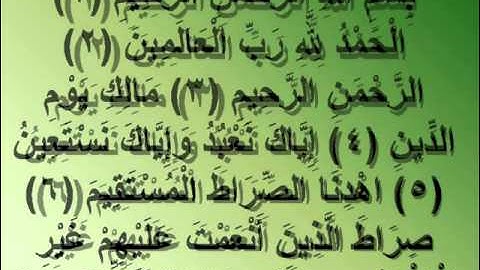 بِسْمِ اللَّهِ الرَّحْمَنِ الرَّحِيمِ (١)
الْحَمْدُ لِلَّهِ رَبِّ الْعَالَمِينَ (٢)
الرَّحْمَنِ الرَّحِيمِ (٣) مَالِكِ يَوْمِ
الدِّينِ (٤) إِيَّاكَ نَعْبُدُ وَإِيَّاكَ نَسْتَعِينُ
(٥) اهْدِنَا الصِّرَاطَ الْمُسْتَقِيمَ (٦)
صِرَاطَ الَّذِينَ أَنْعَمْتَ عَلَيْهِمْ غَيْرِ